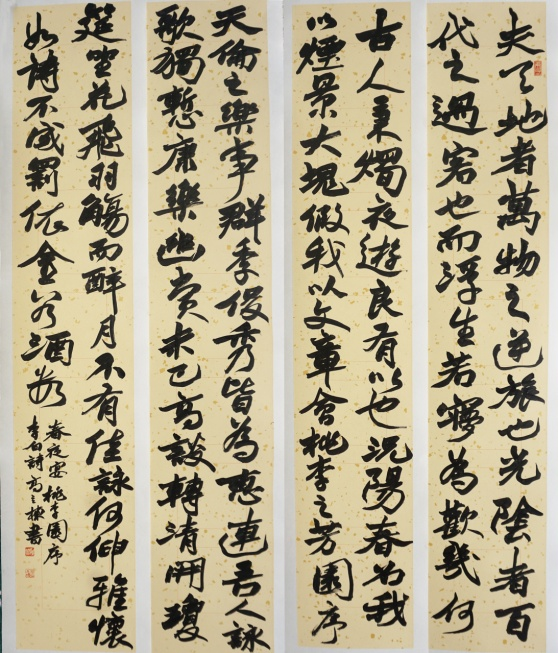 夫天地者萬物之逆旅也光陰者百
代之過客也而浮生若夢為歡幾何
古人秉燭夜遊良有以也況陽春召我
以煙景大塊假我以文章會桃李之芳園序
天倫之樂事群季俊秀皆為惠連吾人詠
歌獨慙康樂幽賞未已高談轉清開瓊
筵坐花飛羽觴而醉月不有佳詠何伸雅懷
如詩不成罰依金谷酒數
春夜宴桃李園序
李白詩高之書